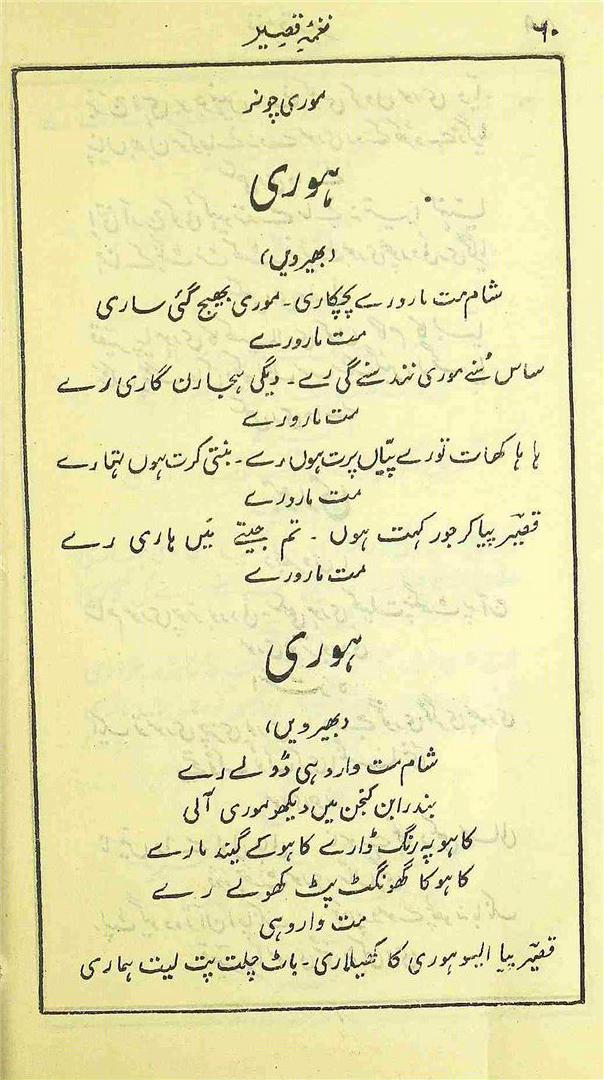 ۶۰
نغمۂ قیصر
موری چونر
ہوری
(بھیرویں)
شام مت مارو رے پچپکاری ۔ موری بھیج گئی ساری
مت مارورے
ساس سُنے موری نند سنے گی رے ۔ دیگی ہجارن گاری رے
مت مارو رے
ہا ہا کھات تورے پیّاں پرت ہوں رے ۔ بنتی کرت ہوں تہارے
مت مارورے
قیصرؔ پیا کرجور کہت ہوں ۔ تم جیتے میَں ہاری رے
مت مارورے
ہوری
(بھیرویں)
شام مت وارو ہی ڈولے رے
بندرابن کنجن میں دیکھو موری آلی
کاہو پہ رنگ ڈارے کاہو کے گیند مارے
کاہو کا گھونگٹ پٹ کھولے رے
مت وارو ہی
قیصرؔ پیا البیو ہوری کا کھیلاری ۔ باٹ چلت پت لیت ہماری